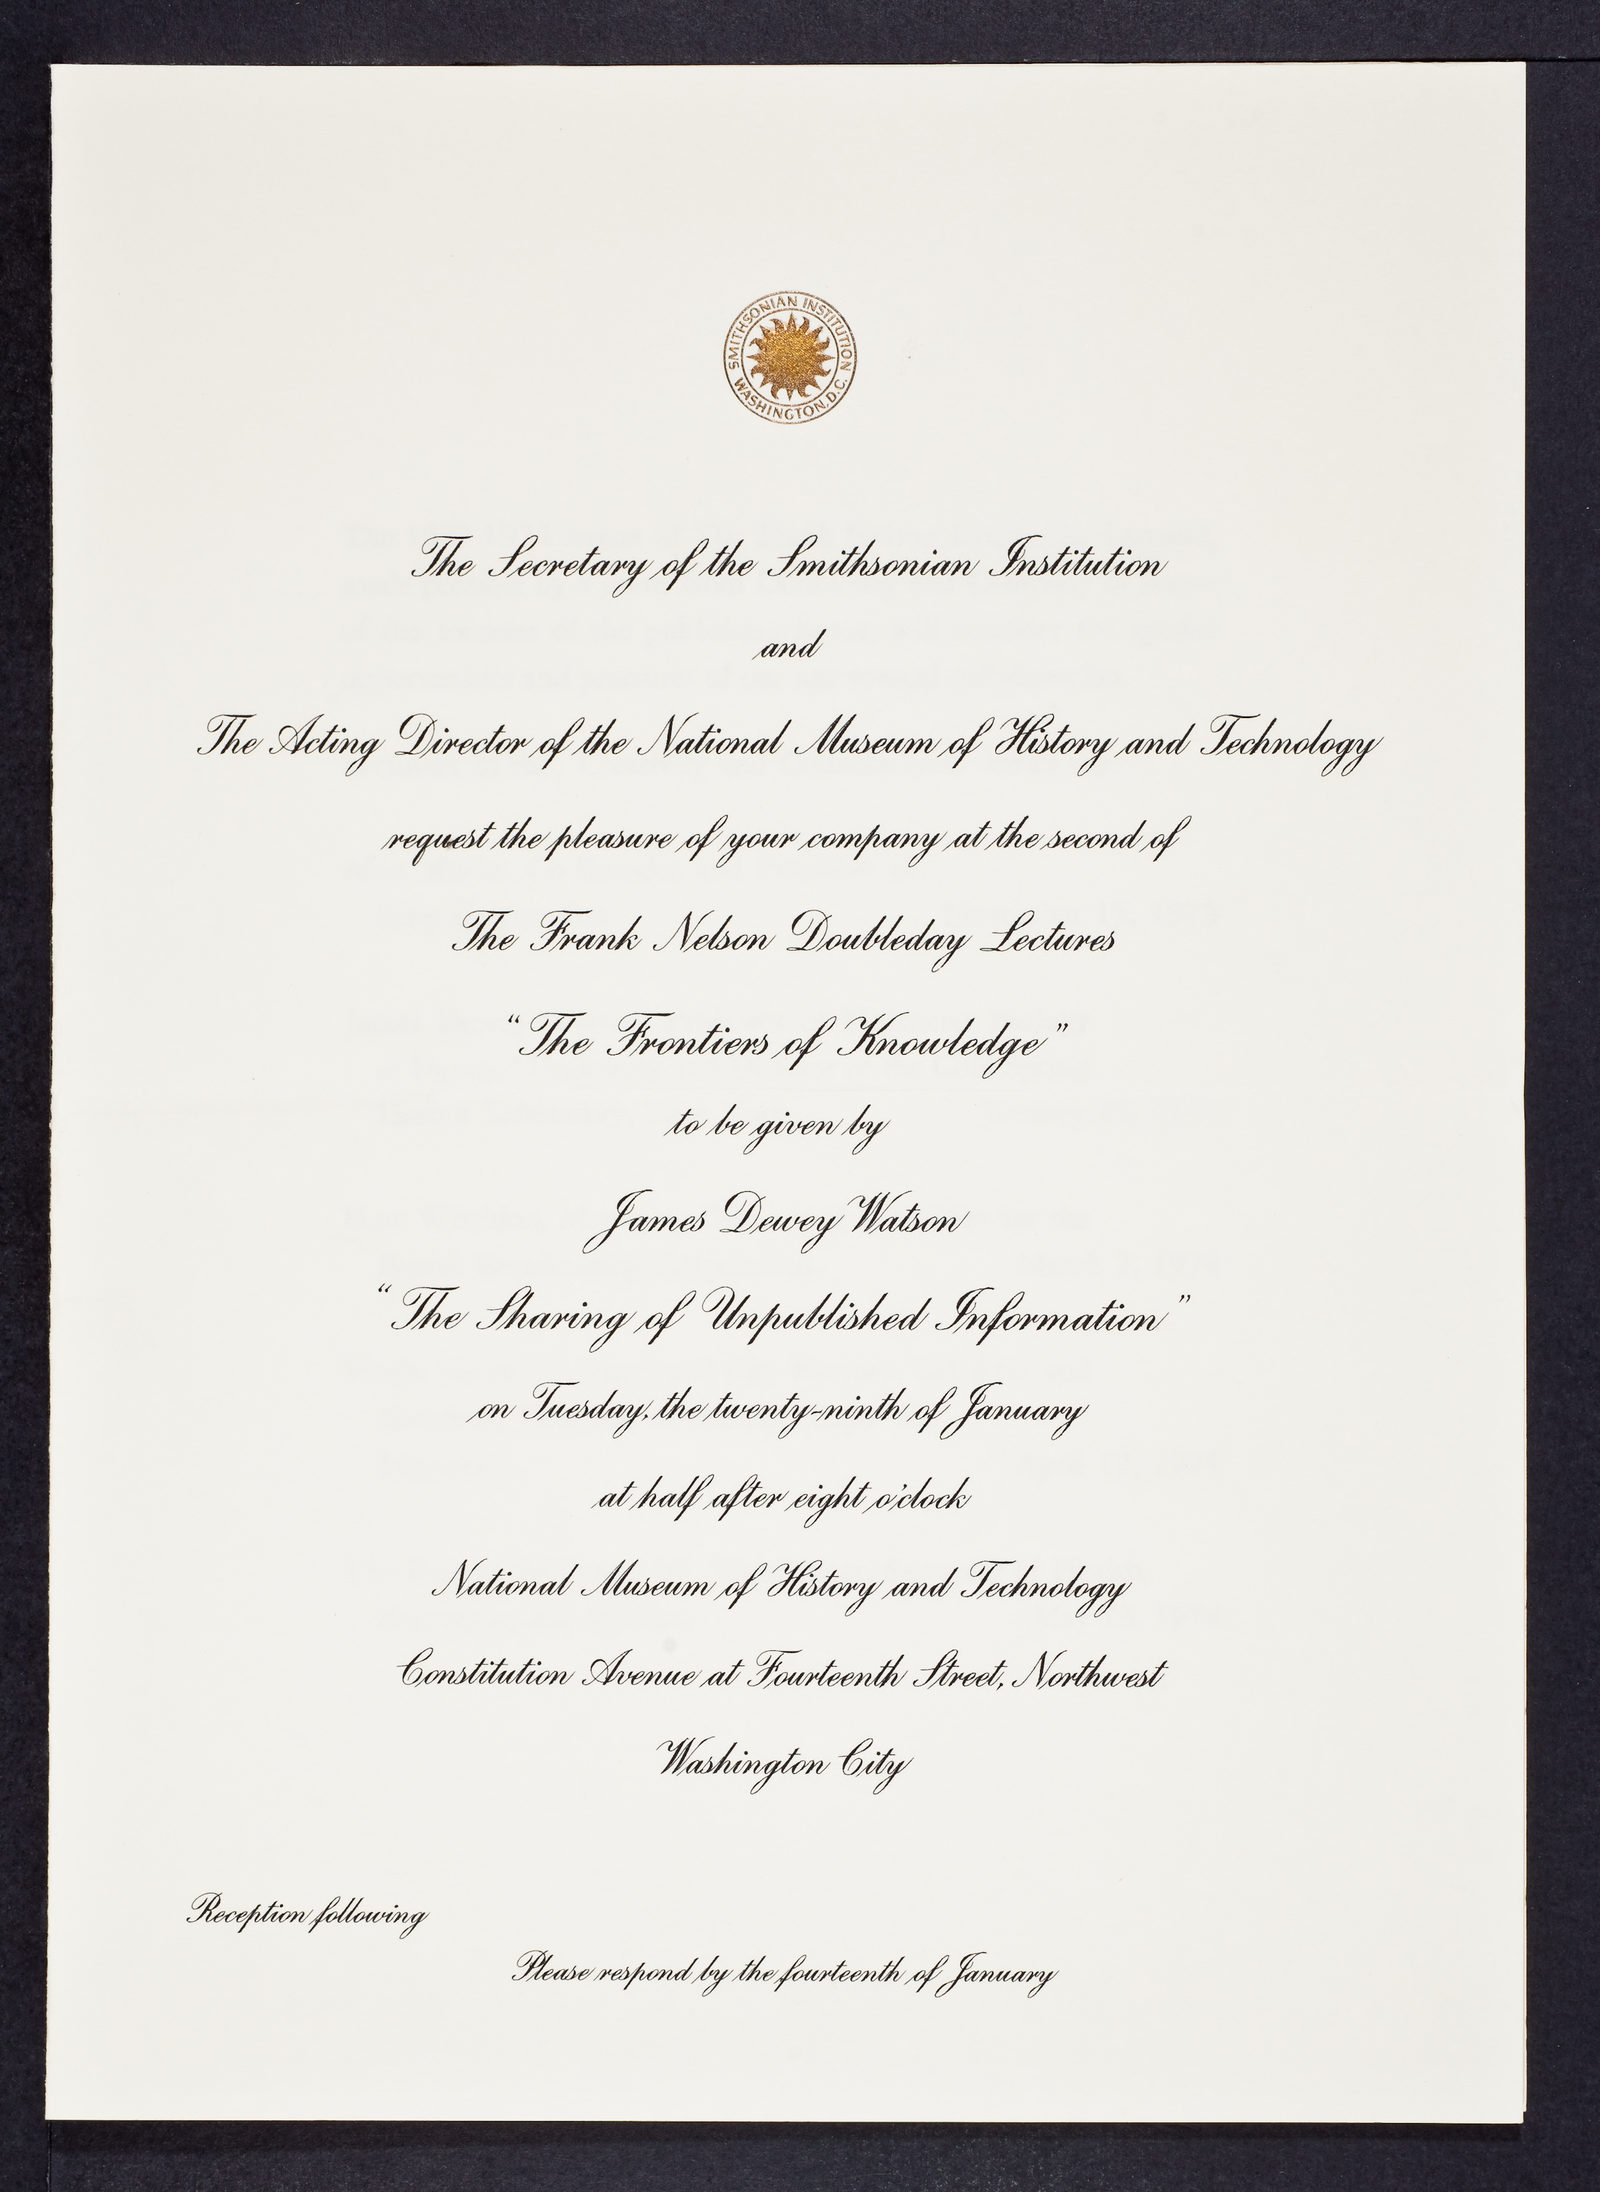 SMITHSONIAN INSTITUTION
WASHINGTON, D.C.
The Secretary of the Smithsonian Institution
and
The Acting Director of the National Museum of History and Technology
request the pleasure of your company at the second of
The Frank Nelson Doubleday Lectures
“The Frontiers of Knowledge”
to be given by
James Dewey Watson
“The Sharing of Unpublished Information”
on Tuesday, the twenty-ninth of January
at half after eight o'clock
National Museum of History and Technology
Constitution Avenue at Fourteenth Street, Northwest
Washington City
Reception following
Please respond by the fourteenth of January